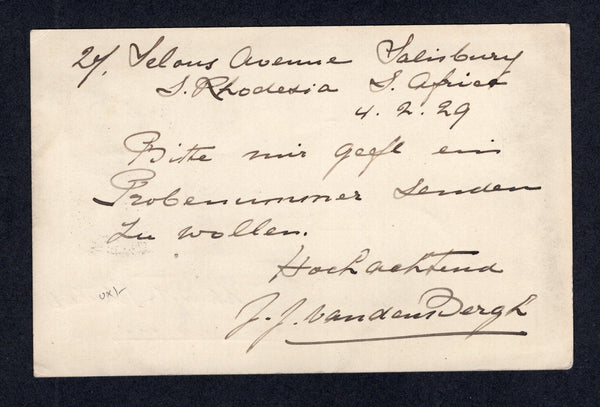 27, Selous Avenue Salisbury
S. Rhodesia S. Africa
4. 2. 29
Bitte mir gefl ein
Probenummer senden
zu wollen.
Hochachtend
J. J. van den Bergh